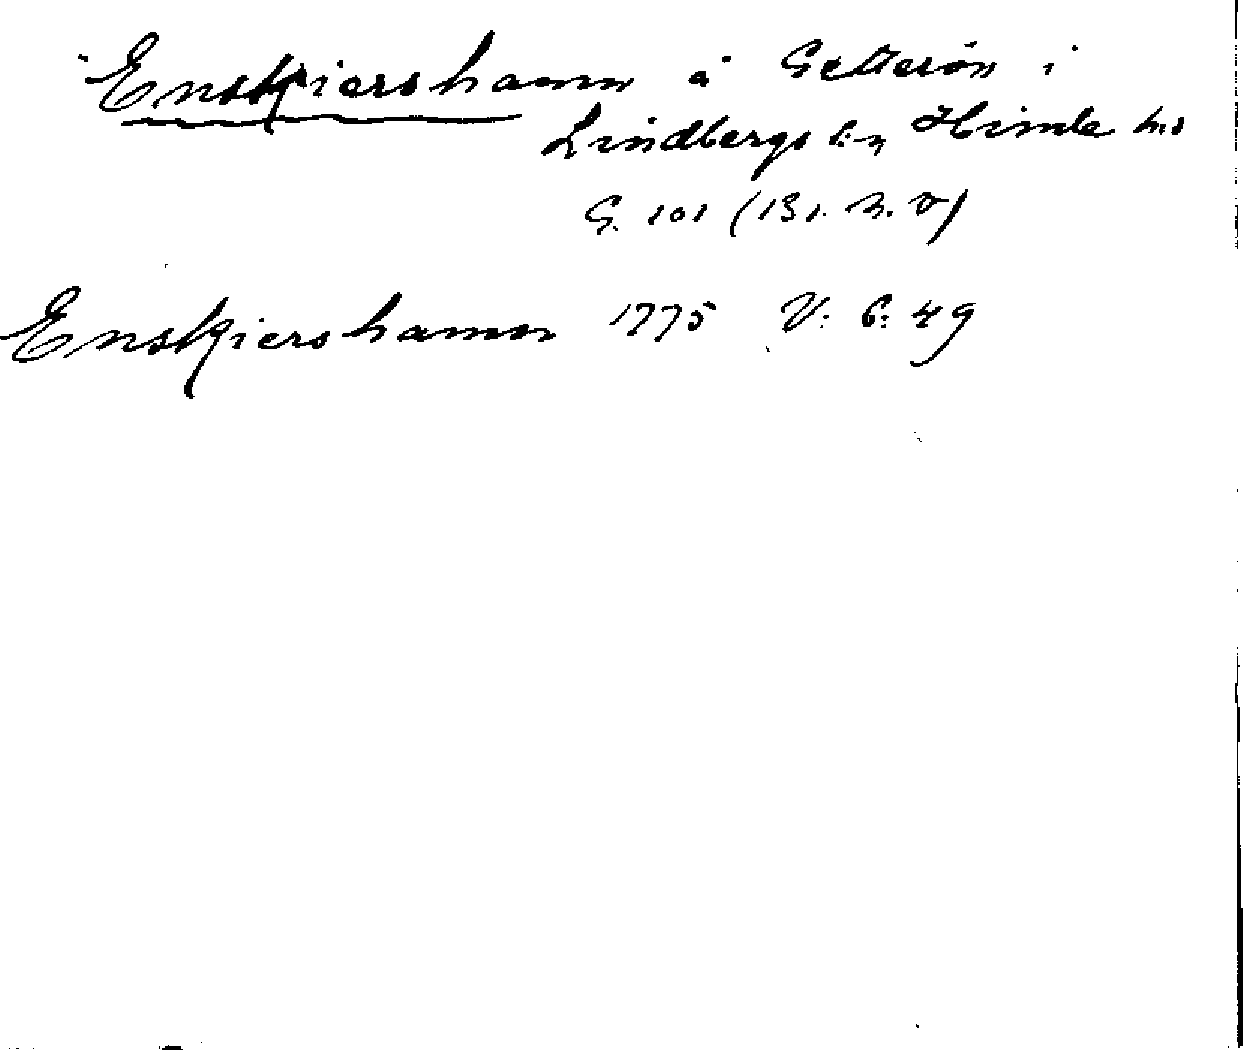 Enskjiershamn å Getterön i
Lindbergs sn, Himle hd
G. 101 (131. N. V)
Enskjiershamn 1775 V: 6: 49